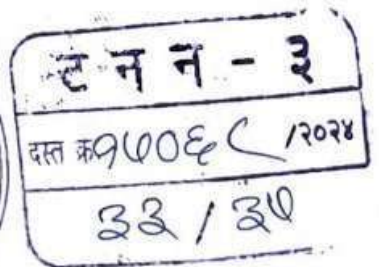 ट न न - ३
दस्त क्र १७०६८ /२०२४
३३ / ३७